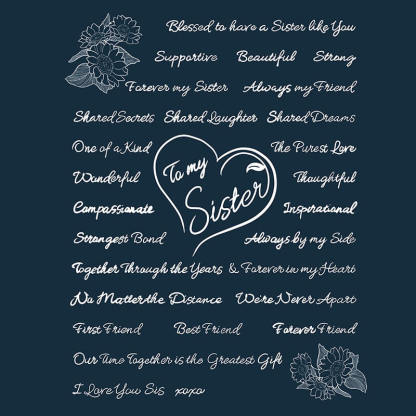 Blessed to have a Sister like You
Supportive Beautiful Strong
Forever my Sister Always my Friend
Shared Secrets Shared Laughter Shared Dreams
One of a Kind The Purest Love
Wonderful To my Thoughtful
Compassionate Sister Inspirational
Strongest Bond Always by my Side
Together Through the Years & Forever in my Heart
No Matter the Distance We're Never Apart
First Friend Best Friend Forever Friend
Our Time Together is the Greatest Gift
I Love You Sis xoxo